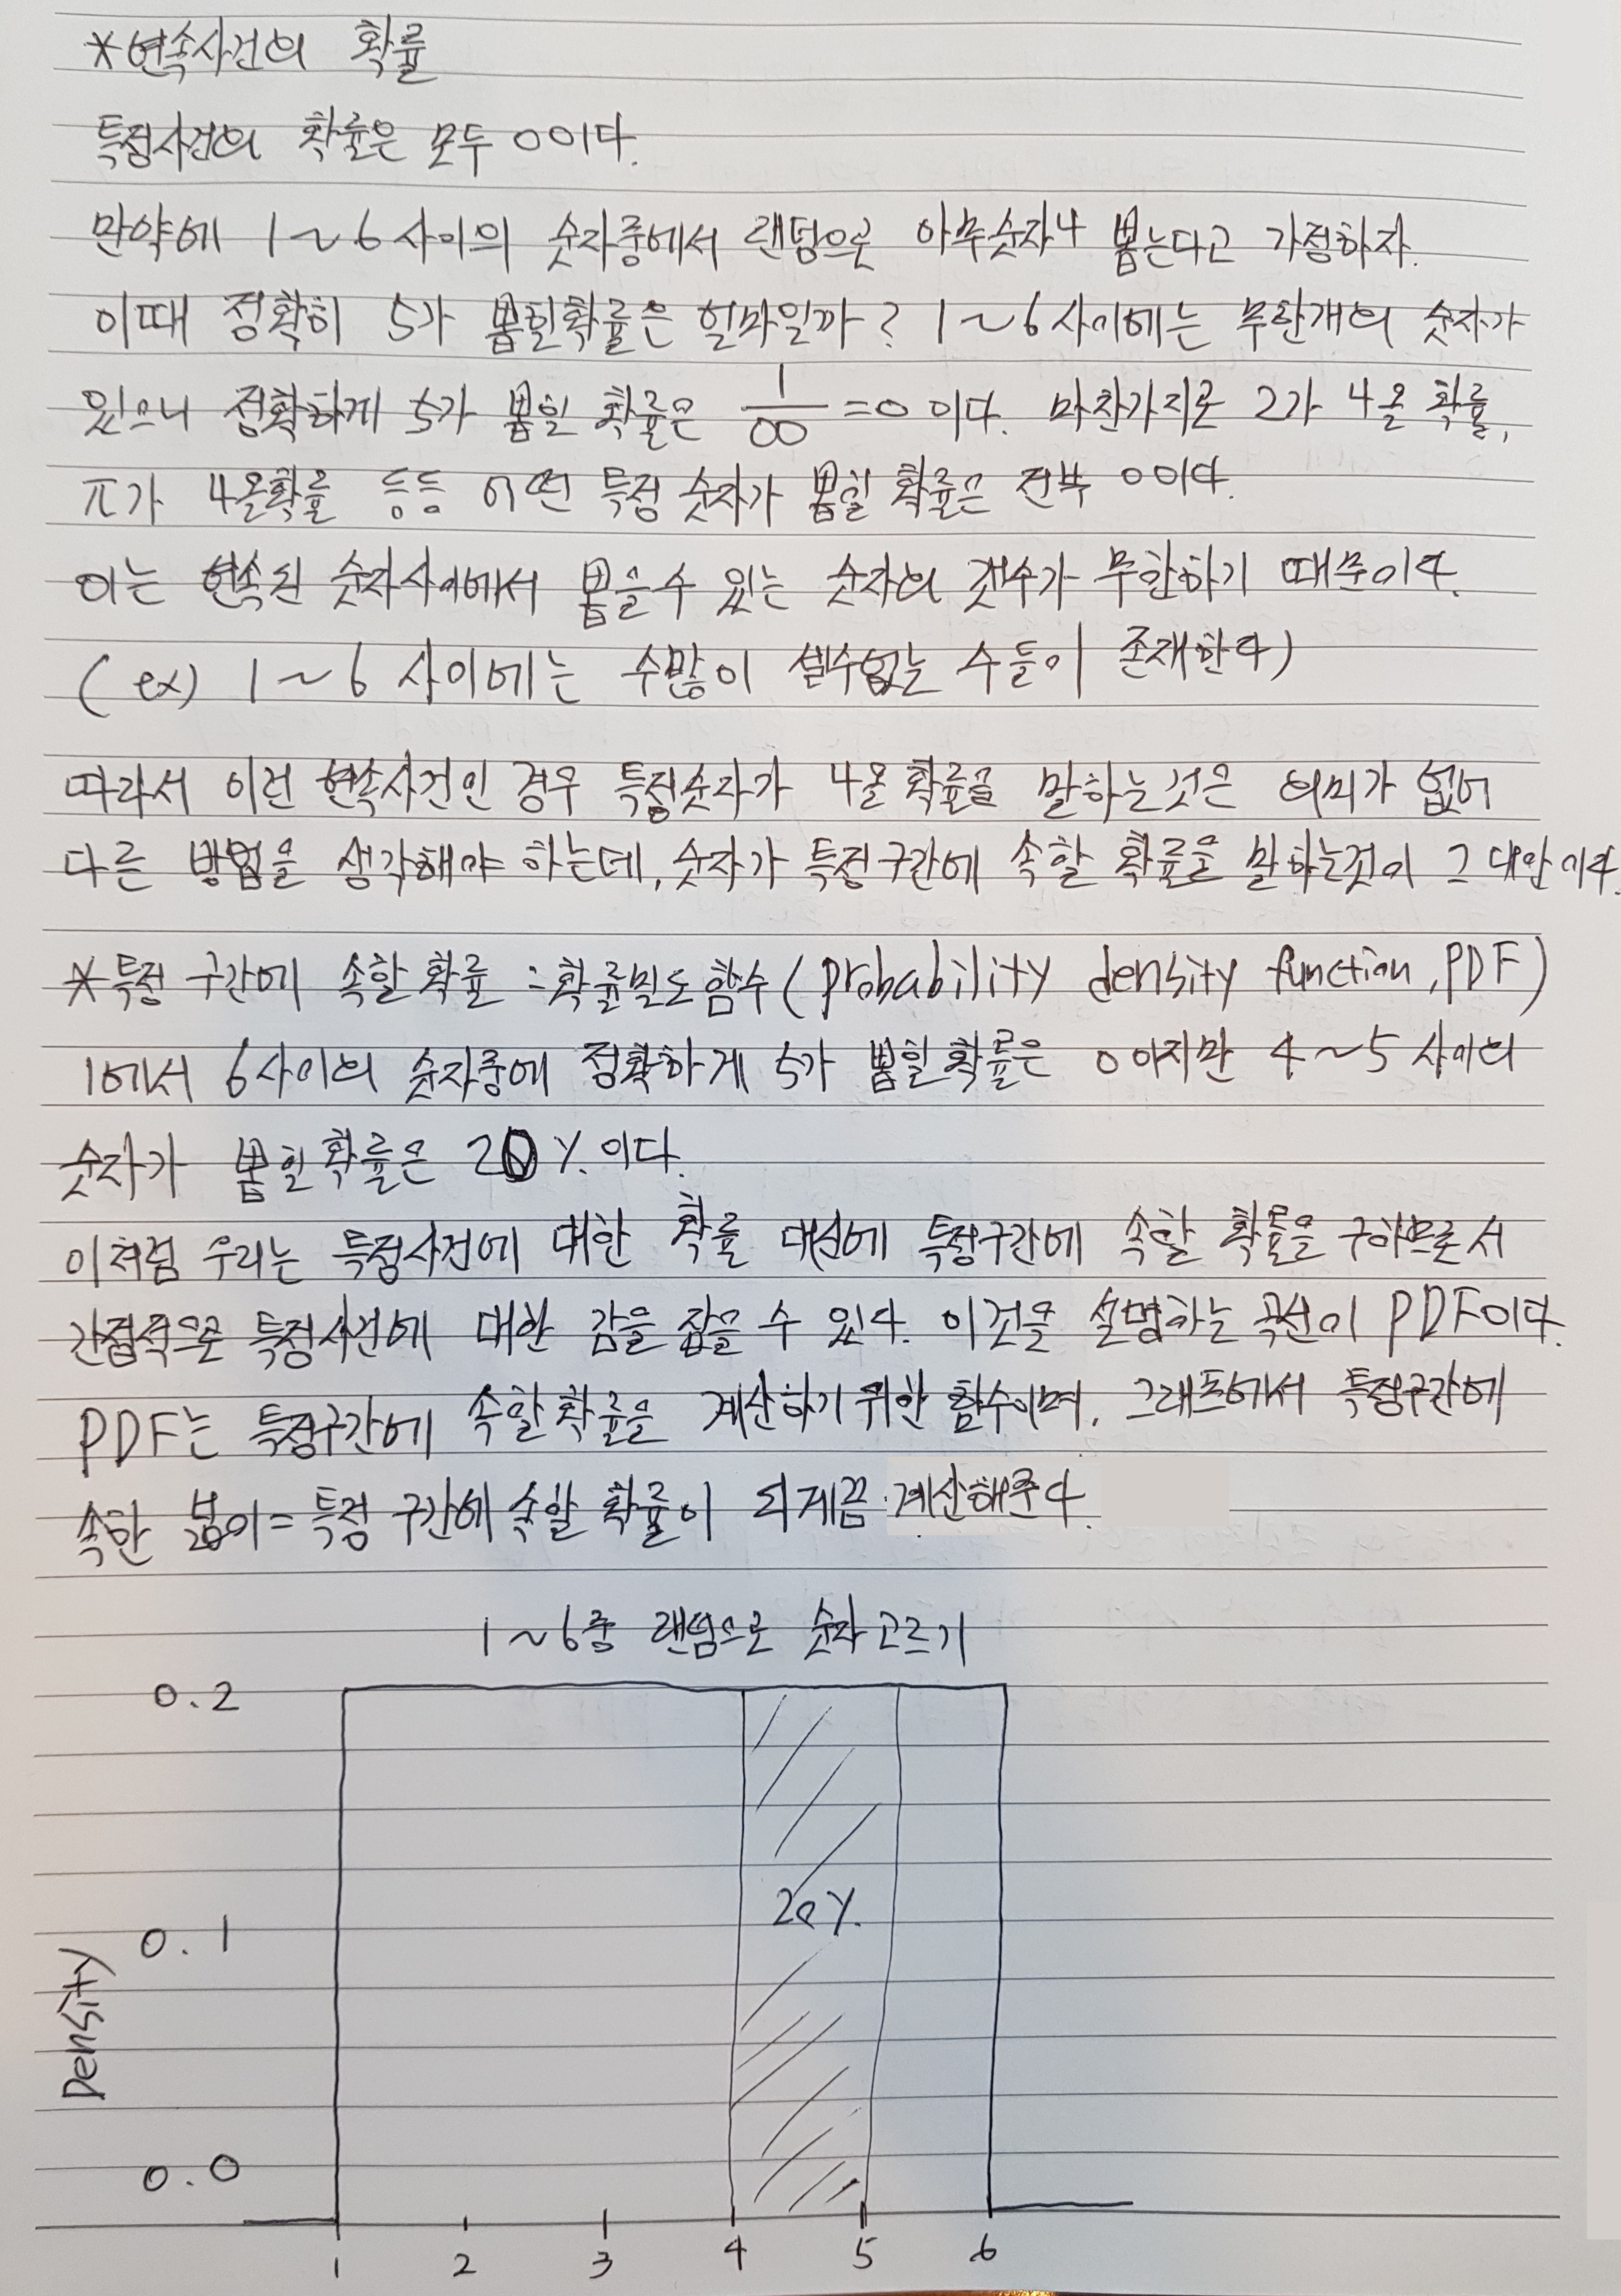 *연속사건의 확률
특정사건의 확률은 모두 0이다.
만약에 1~6사이의 숫자중에서 랜덤으로 아무숫자나 뽑는다고 가정하자.
이때 정확히 5가 뽑힐확률은 얼마일까? 1~6사이에는 무한개의 숫자가
있으니 정확하게 5가 뽑힐 확률은 1/∞=0 이다. 마찬가지로 2가 나올 확률,
π가 나올확률 등등 어떤 특정 숫자가 뽑힐 확률은 전부 0이다.
이는 연속된 숫자사이에서 뽑을수 있는 숫자의 갯수가 무한하기 때문이다.
(ex) 1~6 사이에는 수많이 셀수없는 수들이 존재한다)
따라서 이런 연속사건인 경우 특정숫자가 나올 확률을 말하는것은 의미가 없어
다른 방법을 생각해야 하는데, 숫자가 특정구간에 속할 확률을 말하는것이 그 대안이다.
*특정 구간에 속할 확률 : 확률밀도함수(probability density function, PDF)
1에서 6사이의 숫자중에 정확하게 5가 뽑힐확률은 0이지만 4~5 사이의
숫자가 뽑힐확률은 20%이다.
이처럼 우리는 특정사건에 대한 확률 대신에 특정구간에 속할 확률을 구하므로서
간접적으로 특정사건에 대한 감을 잡을 수 있다. 이것을 설명하는 곡선이 PDF이다.
PDF는 특정구간에 속할확률을 계산하기 위한 함수이며, 그래프에서 특정구간에
속한 넓이=특정 구간에 속할 확률이 되게끔 계산해준다.
1~6중 랜덤으로 숫자고르기
0.2
20%
0.1
Density
0.0
1 2 3 4 5 6